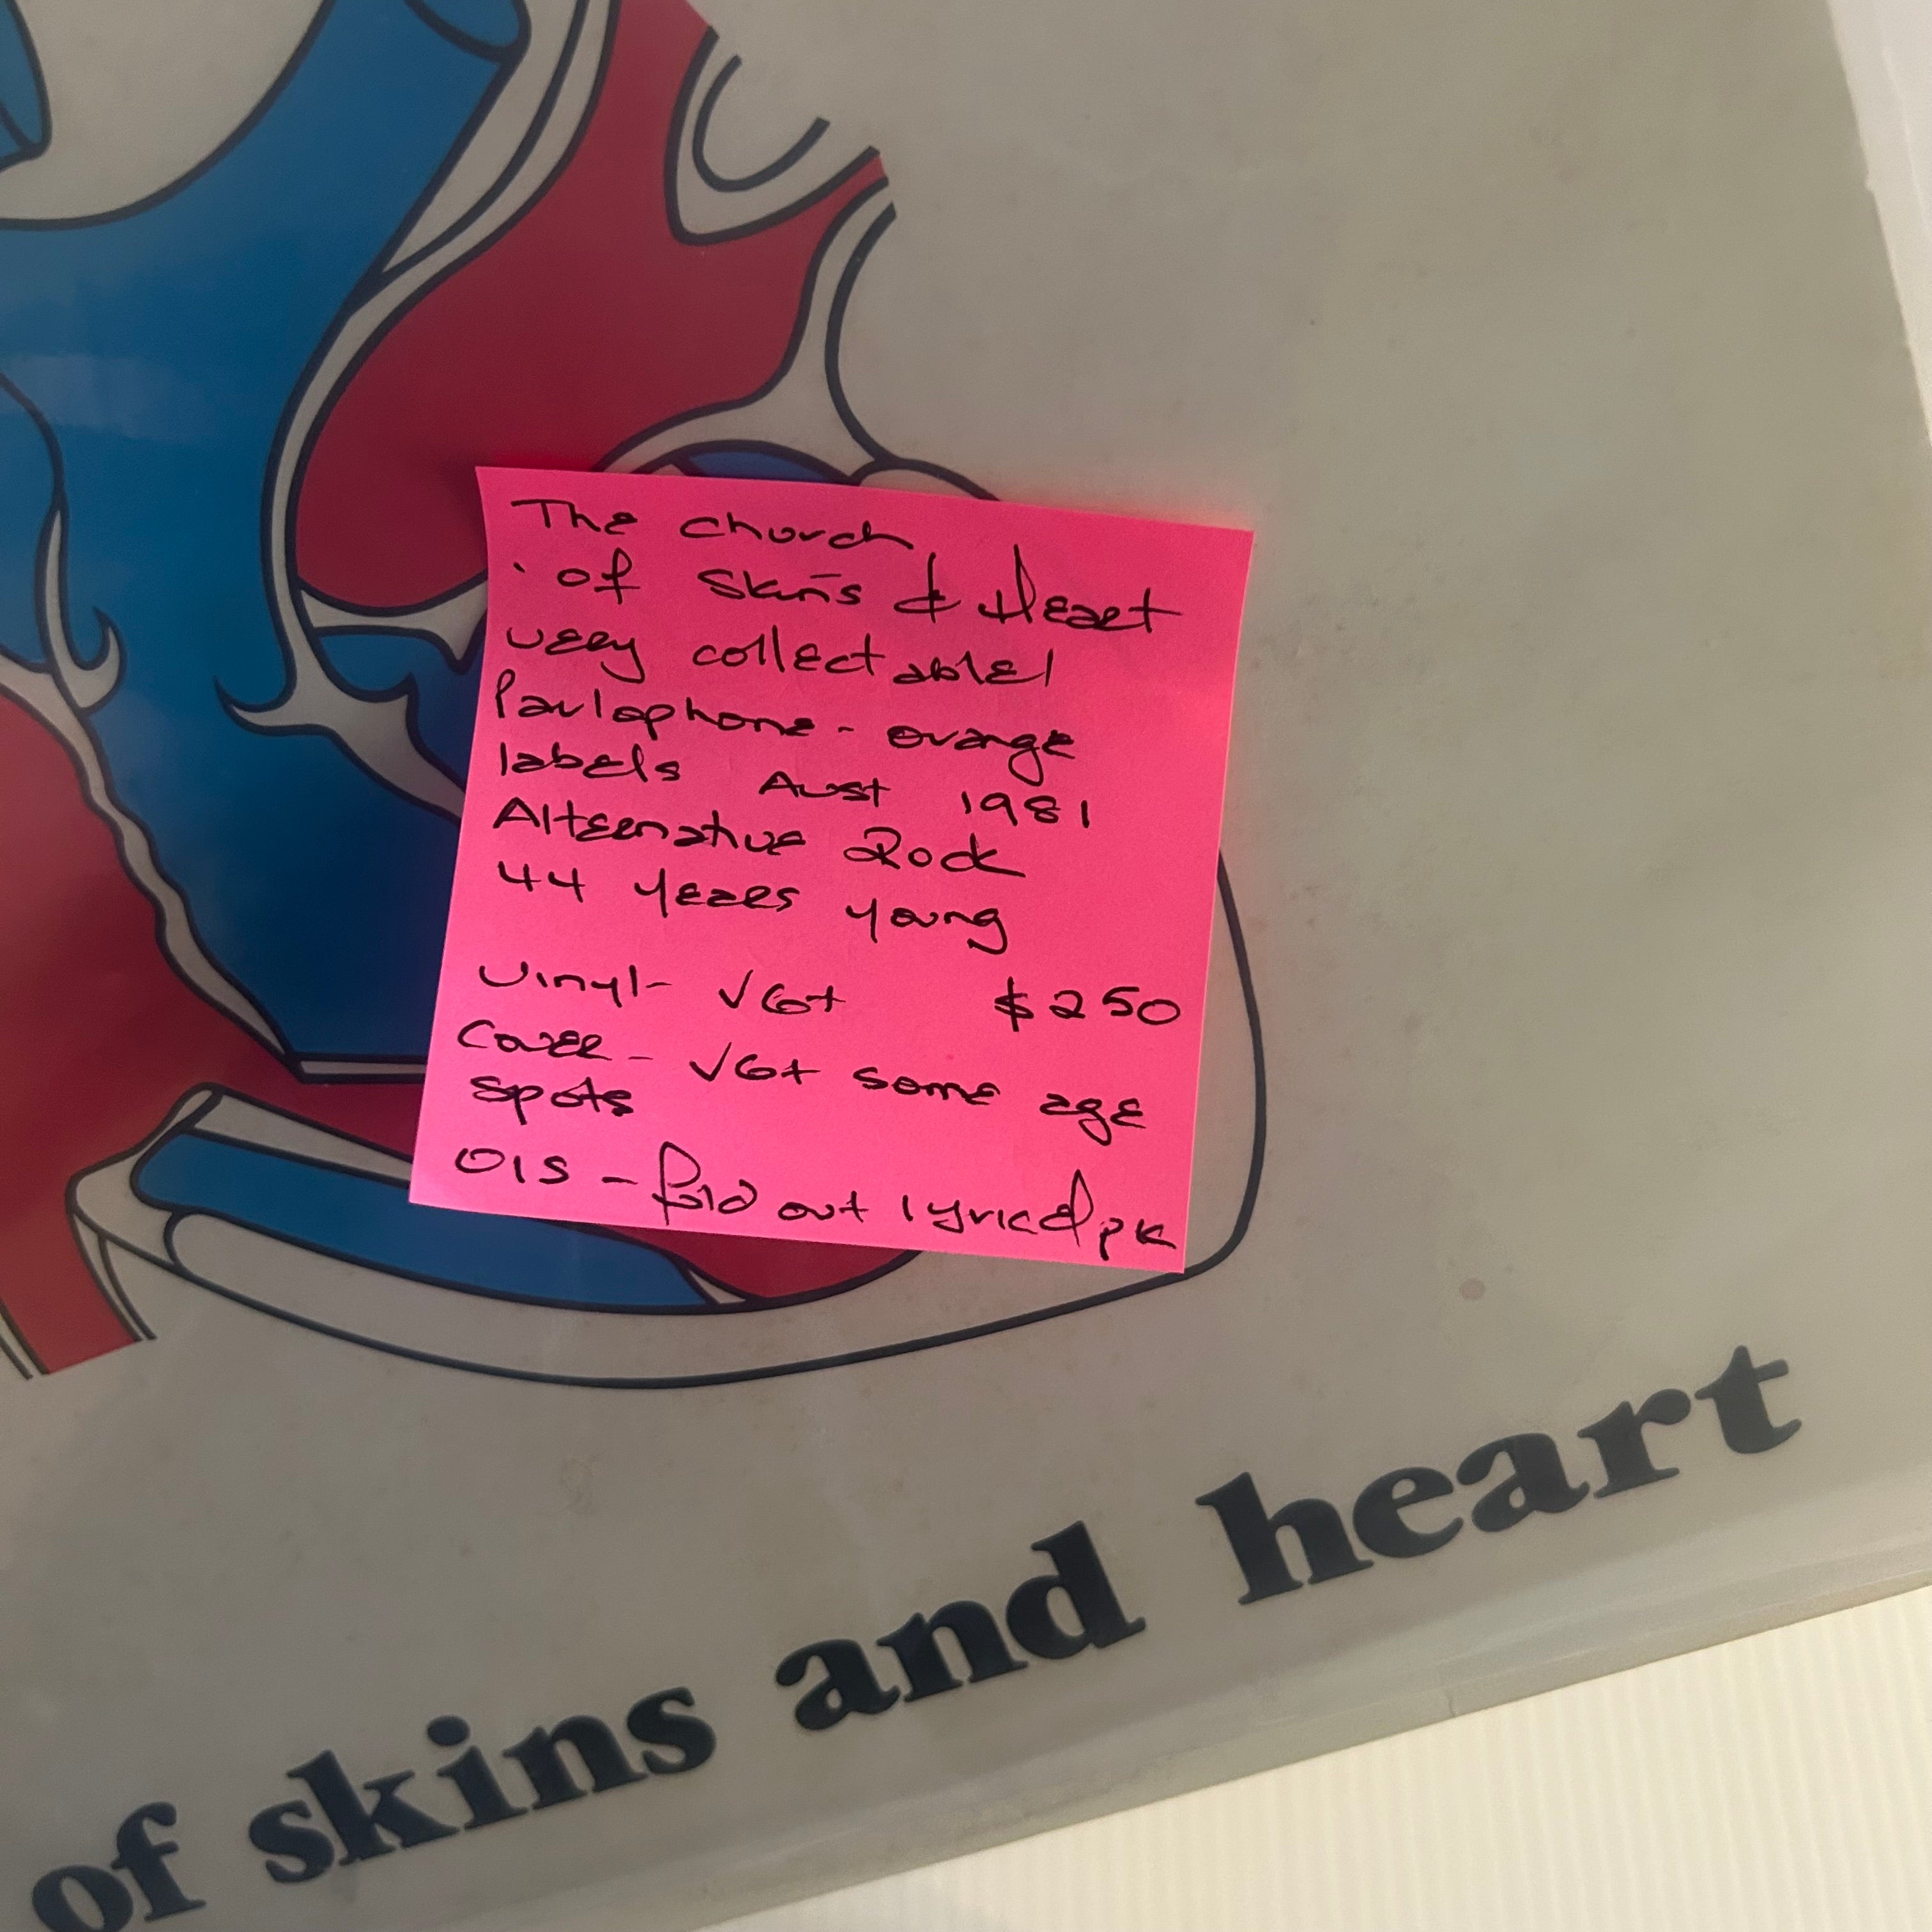 The Church
of Skins & Heart
very collectable!
Parlophone - orange
labels Aust 1981
Alternative Rock
44 years young
Vinyl- VG+ $250
Cover - VG+ some age
spots
OIS - fold out lyric
of skins and heart